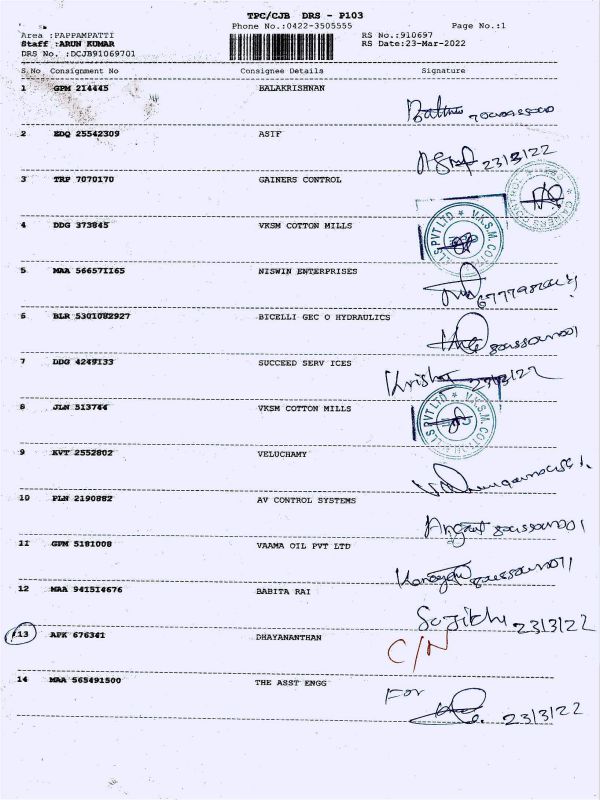 TPC/CJB DRS - P103
Phone No.:0422-3505555 Page No.:1
Area :PAPPAMPATTI RS No.:910697
Staff :ARUN KUMAR RS Date:23-Mar-2022
DRS No. :DCJB91069701
S.No Consignment No Consignee Details Signature
1 GPM 214445 BALAKRISHNAN
2 EDQ 25542309 ASIF
23/3/22
3 TRP 7070170 GAINERS CONTROL
4 DDG 373845 VKSM COTTON MILLS
5 MAA 566571165 NISWIN ENTERPRISES
6 BLR 5301082927 BICELLI GEC O HYDRAULICS
7 DDG 4249133 SUCCEED SERV ICES
23/3/22
8 JLN 513744 VKSM COTTON MILLS
9 KVT 2552802 VELUCHAMY
10 PLN 2190882 AV CONTROL SYSTEMS
11 GPM 5181008 VAAMA OIL PVT LTD
12 MAA 941514676 BABITA RAI
23/3/22
13 APK 676341 DHAYANANTHAN
C/N
14 MAA 565491500 THE ASST ENGG
For
23/3/22